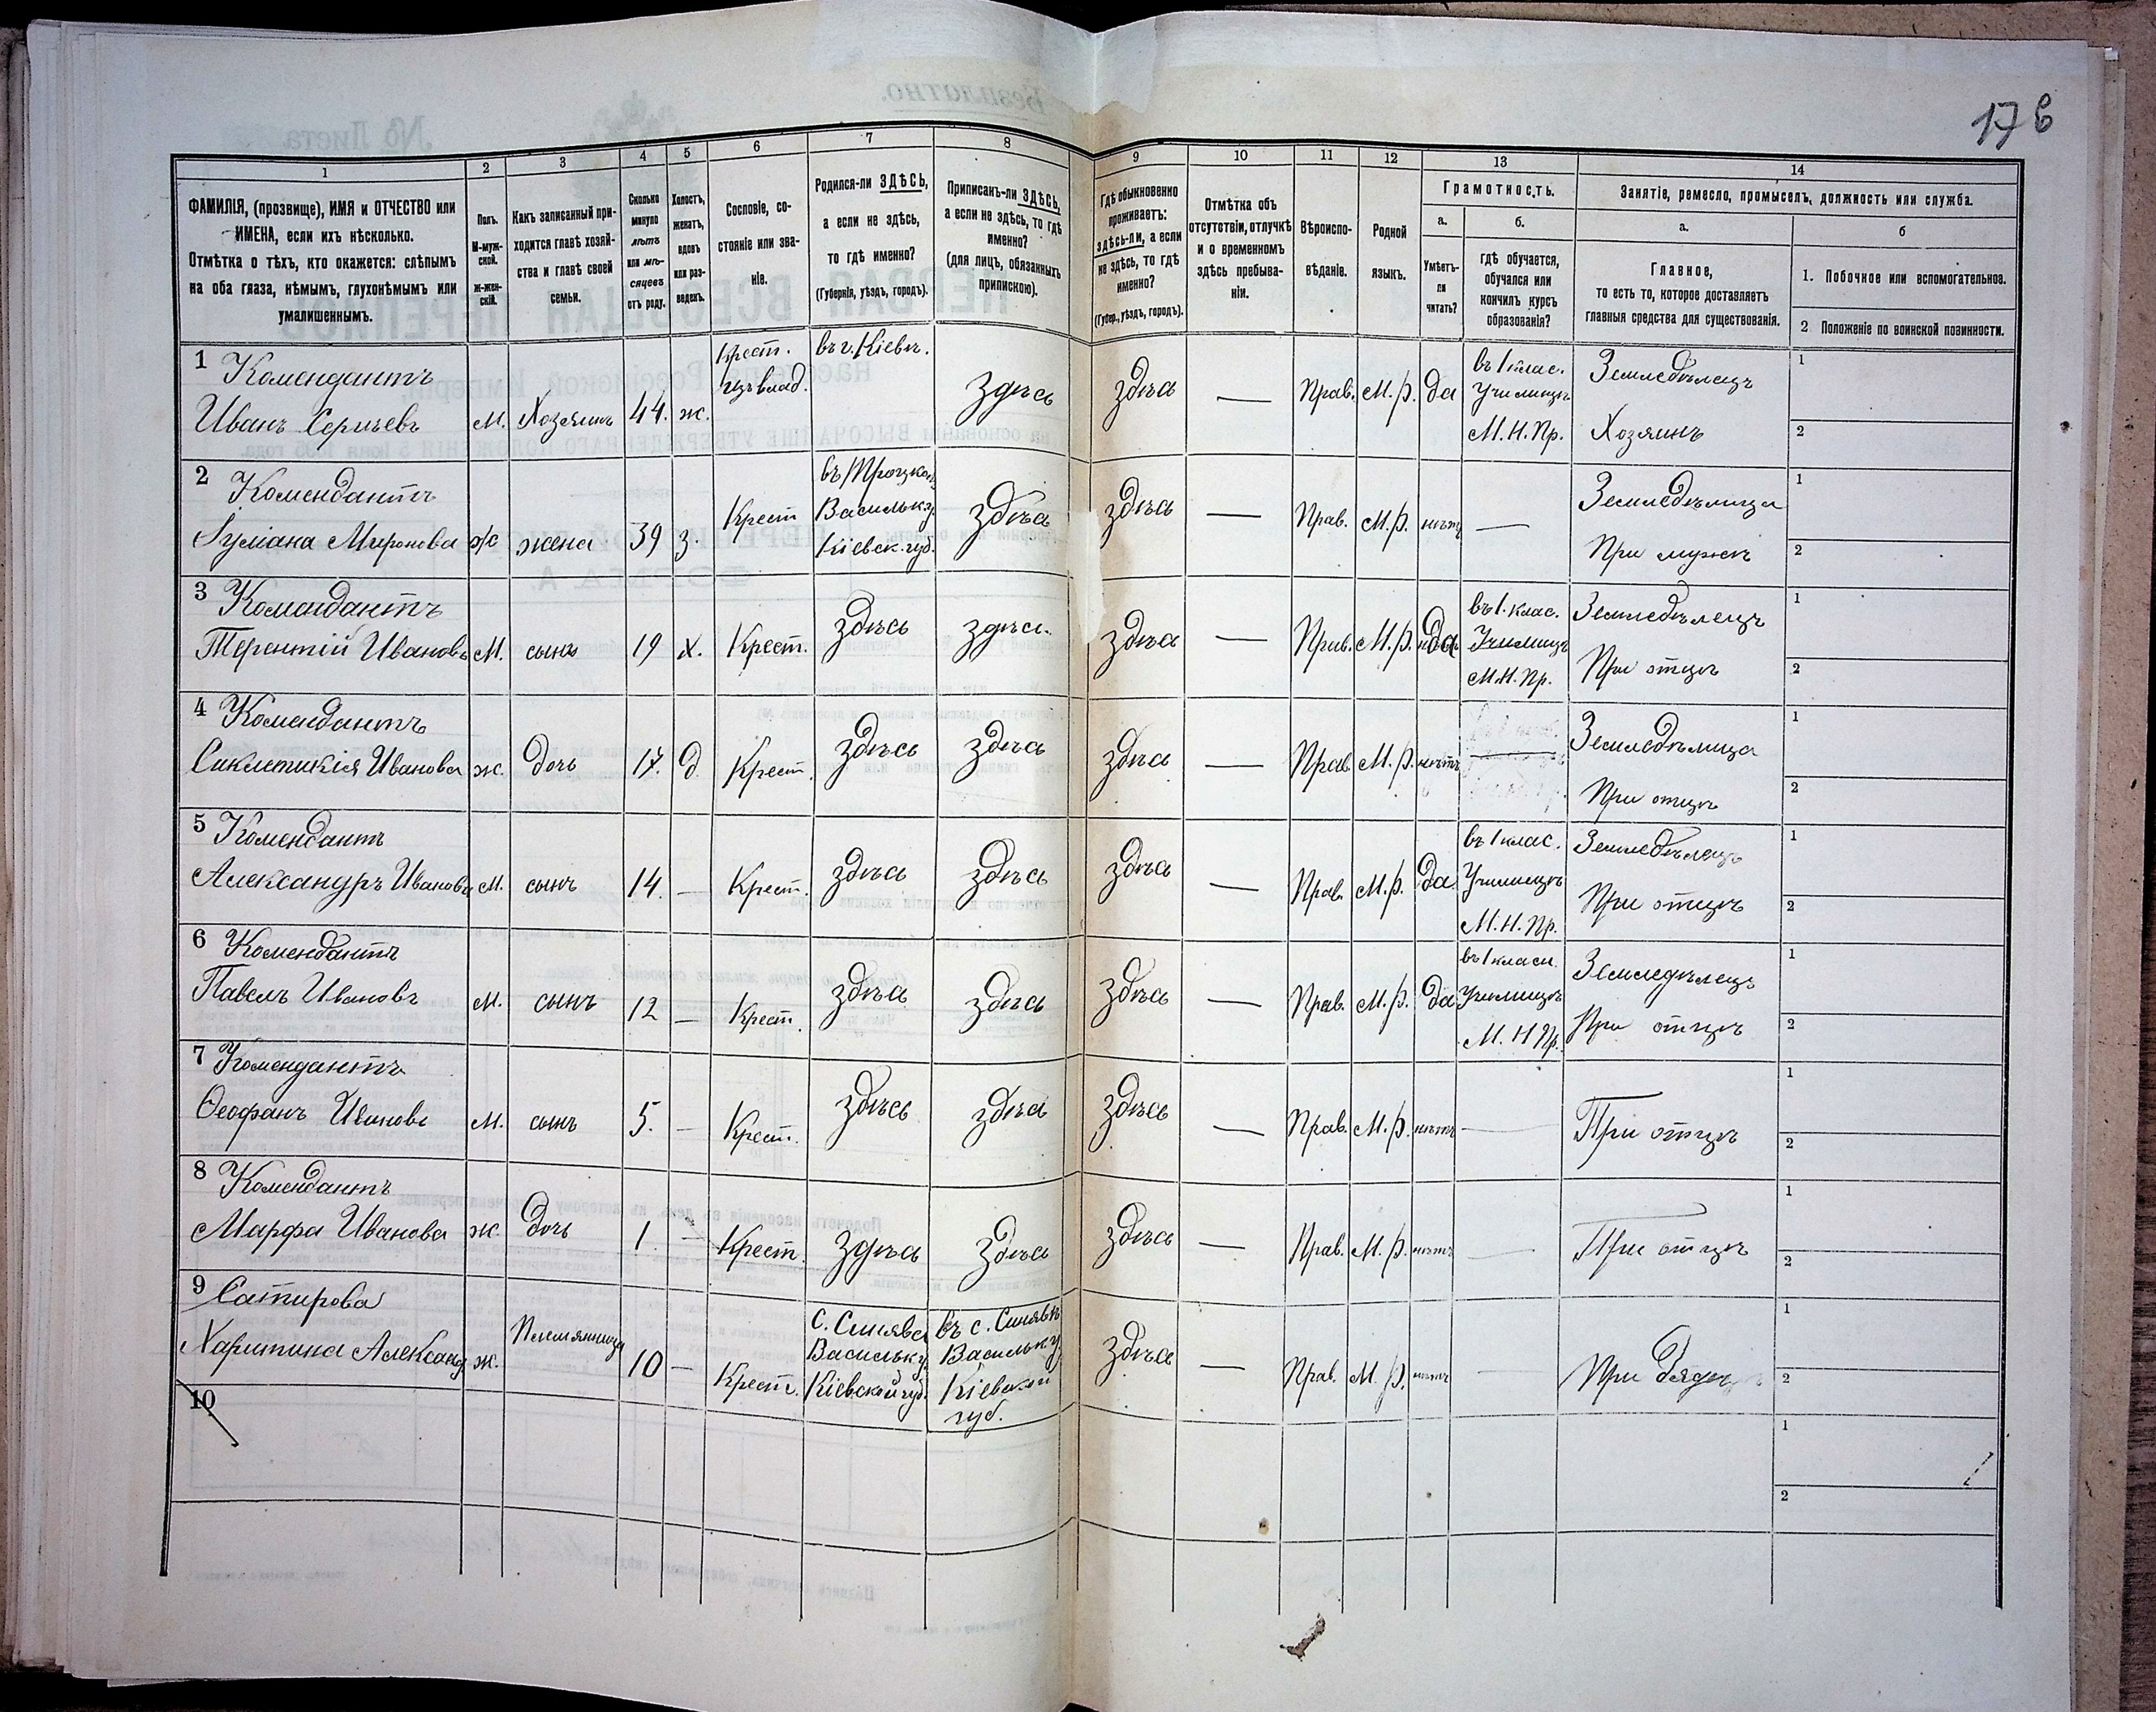 176
1 2 3 4 5 6 7 8 9 10 11 12 13 14
ФАМИЛІЯ, (прозвище), ИМЯ и ОТЧЕСТВО или
ИМЕНА, если ихъ нѣсколько.
Отмѣтка о тѣхъ, кто окажется: слѣпымъ
на оба глаза, нѣмымъ, глухонѣмымъ или
умалишеннымъ.
Полъ.
М-муж-
ской.
Ж-жен-
скій.
Какъ записанный при-
ходится главѣ хозяй-
ства и главѣ своей
семьи.
Сколько
минуло
лѣтъ
или мѣ-
сяцевъ
отъ роду.
Холостъ,
женатъ,
вдовъ
или раз-
веденъ.
Сословіе, со-
стояніе или зва-
ніе.
Родился-ли ЗДѢСЬ,
а если не здѣсь,
то гдѣ именно?
(Губернія, уѣздъ, городъ).
Приписанъ-ли ЗДѢСЬ,
а если не здѣсь, то гдѣ
именно?
(для лицъ, обязанныхъ
припискою).
Гдѣ обыкновенно
проживаетъ:
здѣсь-ли, а если
не здѣсь, то гдѣ
именно?
(Губер., уѣздъ, городъ).
Отмѣтка объ
отсутствіи, отлучкѣ
и о временномъ
здѣсь пребыва-
ніи.
Вѣроиспо-
вѣданіе.
Родной
языкъ.
Грамотность.
а.
Умѣетъ-
ли
читать?
б.
гдѣ обучается,
обучался или
кончилъ курсъ
образованія?
Занятіе, ремесло, промыселъ, должность или служба.
а.
Главное,
то есть то, которое доставляетъ
главныя средства для существованія.
б
1. Побочное или вспомогательное.
2 Положеніе по воинской повинности.
1 Комендантъ
Иванъ Сергѣевъ
М. Хозяинъ 44. ж.
Крест.
изъ влад.
въ г. Кіевѣ.
Здѣсь здѣсь — Прав. М.р. да
въ 1 клас.
Училищѣ
М.Н.Пр.
Земледѣлецъ
Хозяинъ
1
2
2 Комендантъ
Иуліана Миронова
ж жена 39 з. Крест
въ Троцкомъ
Васильк. у.
Кіевск. губ.
здѣсь здѣсь — Прав. М.р. нѣтъ —
Земледѣлица
При мужѣ
1
2
3 Комендантъ
Терентій Ивановъ
М. сынъ 19 х. Крест. здѣсь здѣсь здѣсь — Прав. М.р. да
въ 1. клас.
Училищѣ
М.Н.Пр.
Земледѣлецъ
При отцѣ
1
2
4 Комендантъ
Синклетикія Иванова
ж. дочь 17. д Крест. здѣсь здѣсь здѣсь — Прав. М.р. нѣтъ —
Земледѣлица
При отцѣ
1
2
5 Комендантъ
Александръ Ивановъ
М. сынъ 14. — Крест. здѣсь здѣсь здѣсь — Прав. М.р. да.
въ 1 клас.
Училищѣ
М.Н.Пр.
Земледѣлецъ
При отцѣ
1
2
6 Комендантъ
Павелъ Ивановъ
М. сынъ 12 — Крест. здѣсь здѣсь здѣсь — Прав. М.р. да
въ 1 класн.
Училищѣ
М.Н Пр.
Земледѣлецъ
При отцѣ
1
2
7 Комендантъ
Ѳеофанъ Ивановъ
М. сынъ 5. — Крест. здѣсь здѣсь здѣсь — Прав. М.р. нѣтъ —
При отцѣ
1
2
8 Комендантъ
Марфа Иванова
ж. дочь 1. — Крест. здѣсь здѣсь здѣсь — Прав. М.р. нѣтъ —
При отцѣ
1
2
9 Сатирова
Харитина Александ
ж. Племянница 10 — Крест.
С. Синява
Васильк. у.
Кіевской губ.
въ с. Синявѣ
Васильк. у.
Кіевской
губ.
здѣсь — Прав. М.р. нѣтъ —
При дядѣ
1
2
10
1
2